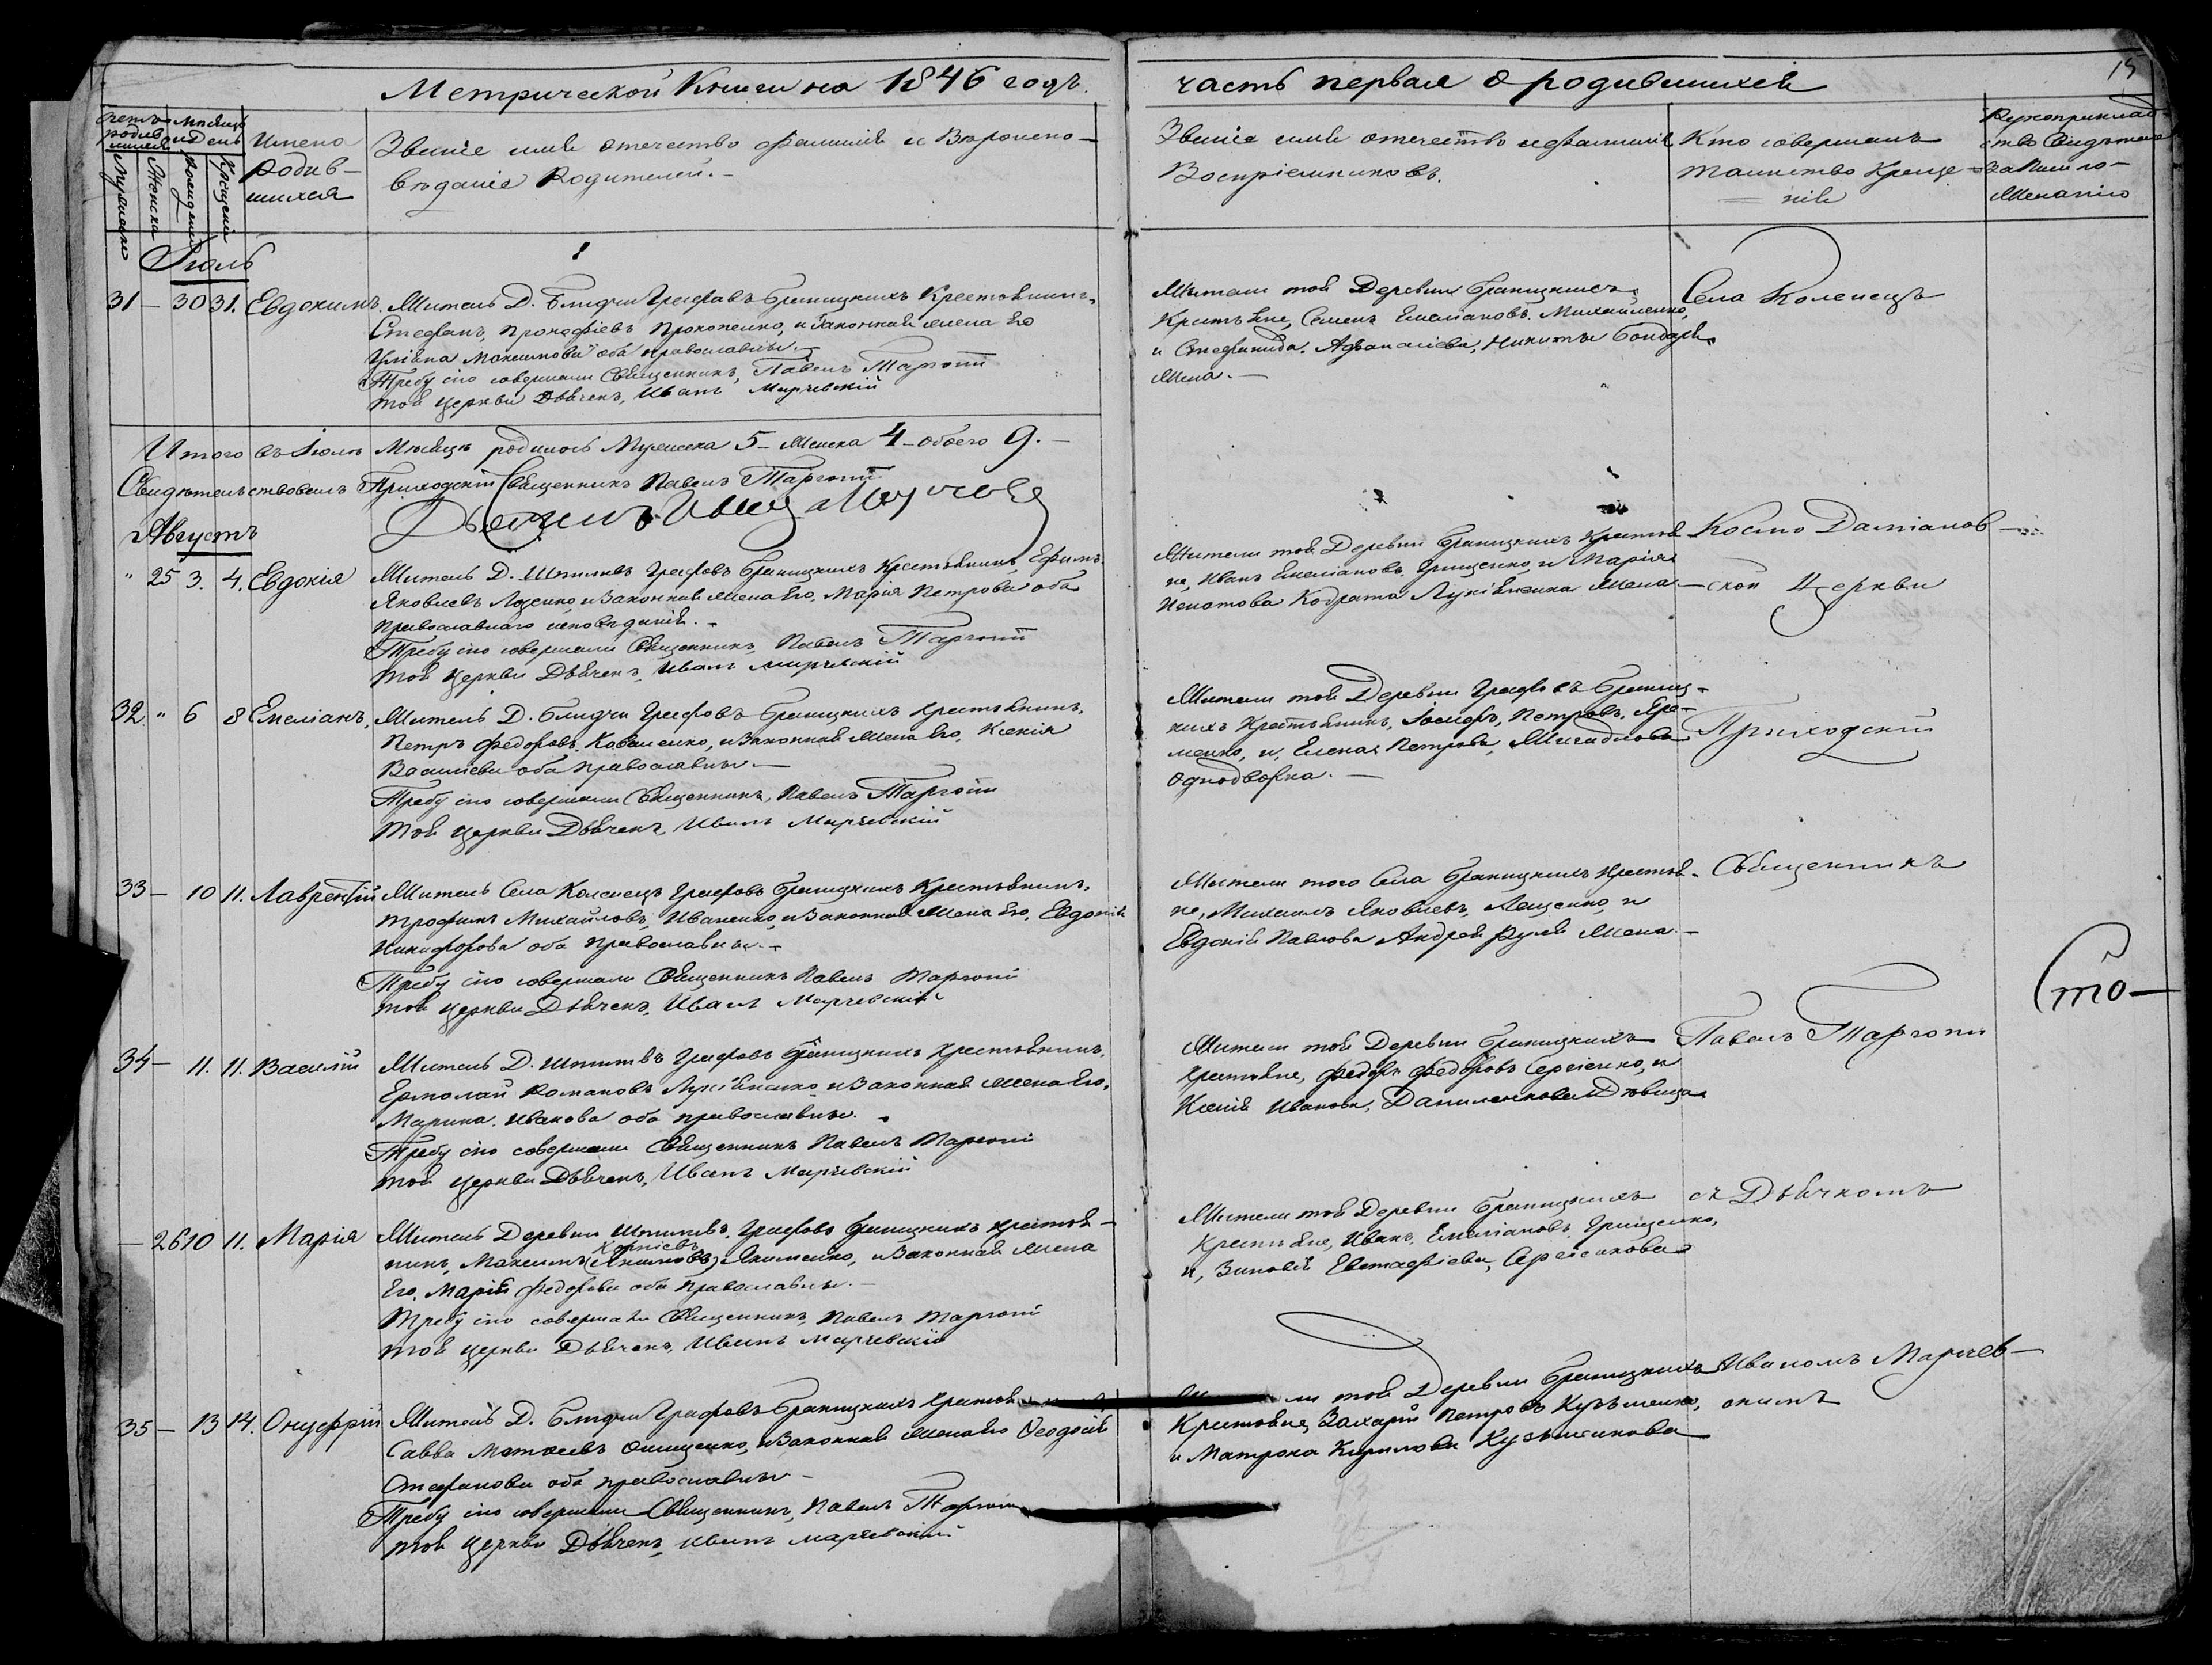 Метрической Книги на 1846 годъ.
часть первая о родившихся
15
Имена
Родив-
шихся
Званіе имя отечество фамилія и Вѣроиспо-
вѣданіе Родителей.-
Званіе имя отечество и фамилія
Воспріемниковъ.
Кто совершалъ
таинство Креще-
нія
Рукоприклад
ство Свидѣтеле
записи по
Желанію
Мужеска
Женска
Рожденія
Крещенія
Іюль
31 - 30 31. Евдокимъ.
Житель Д. Блидчи Графовъ Браницкихъ Крестьянинъ,
Стефанъ, Прокофіевъ Прокопенко, и Законная жена Его
Уліяна Максимова оба православны.-
Требу сію совершали Священникъ, Павелъ Таргоній
той церкви Дьячекъ, Иванъ Марчевскій
Жители той Деревни Браницкихъ
Крестьяне, Семенъ Емеліановъ Михайленко,
и Стефанида, Афанасіева, Никиты Бондаря
Жена.-
Села Коленецъ
Итого въ Іюлѣ Мѣсяцѣ родилось Мужеска 5- Женска 4- обоего 9.-
Свидѣтельствовалъ Приходскій Священникъ Павелъ Таргоній
Дьячекъ Иванъ
Августъ
" 25 3. 4. Евдокія
Житель Д. Шпилювъ Графовъ Браницкихъ Крестьянинъ, Ефимъ
Яковлевъ Лазенко, и Законная жена Его, Марія Петрова оба
Православнаго исповѣданія.-
Требу сію совершали Священникъ, Павелъ Таргоній
той церкви Дьячекъ, Иванъ Марчевскій
Жители той Деревни Браницкихъ Крестья
не, Иванъ Емеліановъ, Грищенко, и Марія
Кодрата Лукіяненка Жена-
Космо Даміанов-
ской Церкви
32. " 6 8 Емеліанъ,
Житель Д. Блидчи Графовъ Браницкихъ Крестьянинъ,
Петръ Федоровъ, Коваленко, и Законная жена Его, Ксенія
Василіева оба православны.-
Требу сію совершали Священникъ, Павелъ Таргоній
той церкви Дьячекъ, Иванъ Марчевскій
Жители той Деревни Графовъ Браниц-
кихъ Крестьянинъ, Іосифъ, Петровъ, Яре-
менко, и, Елена Петрова,
Однодворка.-
Приходскій
33 - 10 11. Лаврентій
Житель Села Коленецъ Графовъ Браницкихъ Крестьянинъ,
Трофимъ Михайловъ, Иваненко, и Законная жена Его, Евдокія
Никифорова оба православны.-
Требу сію совершали Священникъ Павелъ Таргоній
той церкви Дьячекъ, Иванъ Марчевскій
Жители того Села Браницкихъ Крестья-
не, Михаилъ Яковлевъ, Лещенко, и
Евдокія Павлова Андрея Руля Жена.-
Священникъ
Сто-
34 - 11. 11. Василій
Житель Д. Графовъ Браницкихъ Крестьянинъ,
Ермолай Романовъ Лукіяненко и Законная жена Его,
Марина, Иванова оба православны.
Требу сію совершали Священникъ Павелъ Таргоній
той церкви Дьячекъ, Иванъ Марчевскій
Жители той Деревни Браницкихъ
Крестьяне, Федоръ Федоровъ Сергіенко, и
Ксенія Иванова, Даниленкова Дѣвица
Павелъ Таргоній
- 26 10 11. Марія
Житель Деревни Графовъ Браницкихъ Крестья-
Корніевъ
нинъ, Максимъ (Якимовъ) Якименко, и Законная жена
Его, Марія Федорова оба православны.-
Требу сію совершали Священникъ, Павелъ Таргоній
той церкви Дьячекъ, Иванъ Марчевскій
Жители той Деревни Браницкихъ
Крестьяне, Иванъ, Емеліановъ, Грищенко,
и, Зиновія Евстафіева, Сергіенкова
съ Дьячкомъ
35 - 13 14. Онуфрій
Житель Д. Блидчи Графовъ Браницкихъ Крестья
Савва Матвеевъ Онищенко, и Законная жена Его Феодосія
Стефанова оба православны-
Требу сію совершали Священникъ, Павелъ Таргоній
той церкви Дьячекъ, Иванъ Марчевскій
ли той Деревни Браницкихъ
Крестьяне, Захарій Петровъ Кузьменко,
и Матрона Кирилова Кузьменкова
Иваномъ Марчев-
скимъ